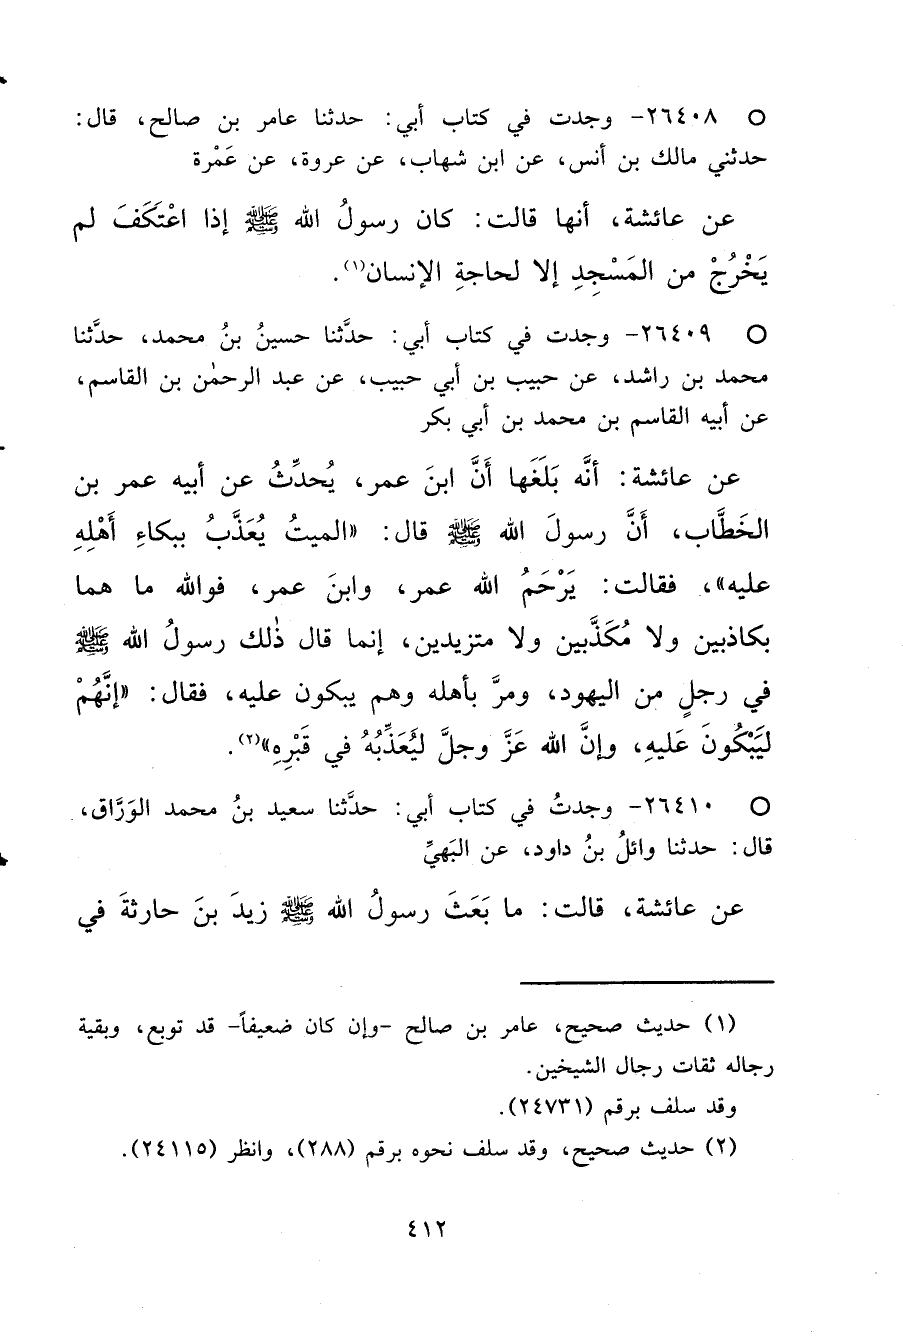 ○ ٢٦٤٠٨- وجدت في كتاب أبي: حدثنا عامر بن صالح، قال:
حدثني مالك بن أنس، عن ابن شهاب، عن عروة، عن عَمْرة
عن عائشة، أنها قالت: كان رسولُ الله ﷺ إذا اعْتَكَفَ لم
يَخْرُجْ من المَسْجِدِ إلا لحاجةِ الإنسان(١).
○ ٢٦٤٠٩- وجدت في كتاب أبي: حدَّثنا حسينُ بنُ محمد، حدَّثنا
محمد بن راشد، عن حبيب بن أبي حبيب، عن عبد الرحمٰن بن القاسم،
عن أبيه القاسم بن محمد بن أبي بكر
عن عائشة: أنَّه بَلَغَها أَنَّ ابنَ عمر، يُحدِّثُ عن أبيه عمر بن
الخَطَّاب، أَنَّ رسولَ الله ﷺ قال: «الميتُ يُعَذَّبُ ببكاءِ أَهْلِهِ
عليه»، فقالت: يَرْحَمُ الله عمر، وابنَ عمر، فوالله ما هما
بكاذبين ولا مُكَذَّبين ولا متزيدين، إنما قال ذٰلك رسولُ الله ﷺ
في رجلٍ من اليهود، ومرَّ بأهله وهم يبكون عليه، فقال: «إنَّهُمْ
ليَبْكُونَ عَليهِ، وإنَّ الله عَزَّ وجلَّ ليُعَذِّبُهُ في قَبْرِهِ»(٢).
○ ٢٦٤١٠- وجدتُ في كتاب أبي: حدَّثنا سعيد بنُ محمد الوَرَّاق،
قال: حدثنا وائلُ بنُ داود، عن البَهيِّ
عن عائشة، قالت: ما بَعَثَ رسولُ الله ﷺ زيدَ بنَ حارثةَ في
(١) حديث صحيح، عامر بن صالح -وإن كان ضعيفاً- قد توبع، وبقية
رجاله ثقات رجال الشيخين.
وقد سلف برقم (٢٤٧٣١).
(٢) حديث صحيح، وقد سلف نحوه برقم (٢٨٨)، وانظر (٢٤١١٥).
٤١٢